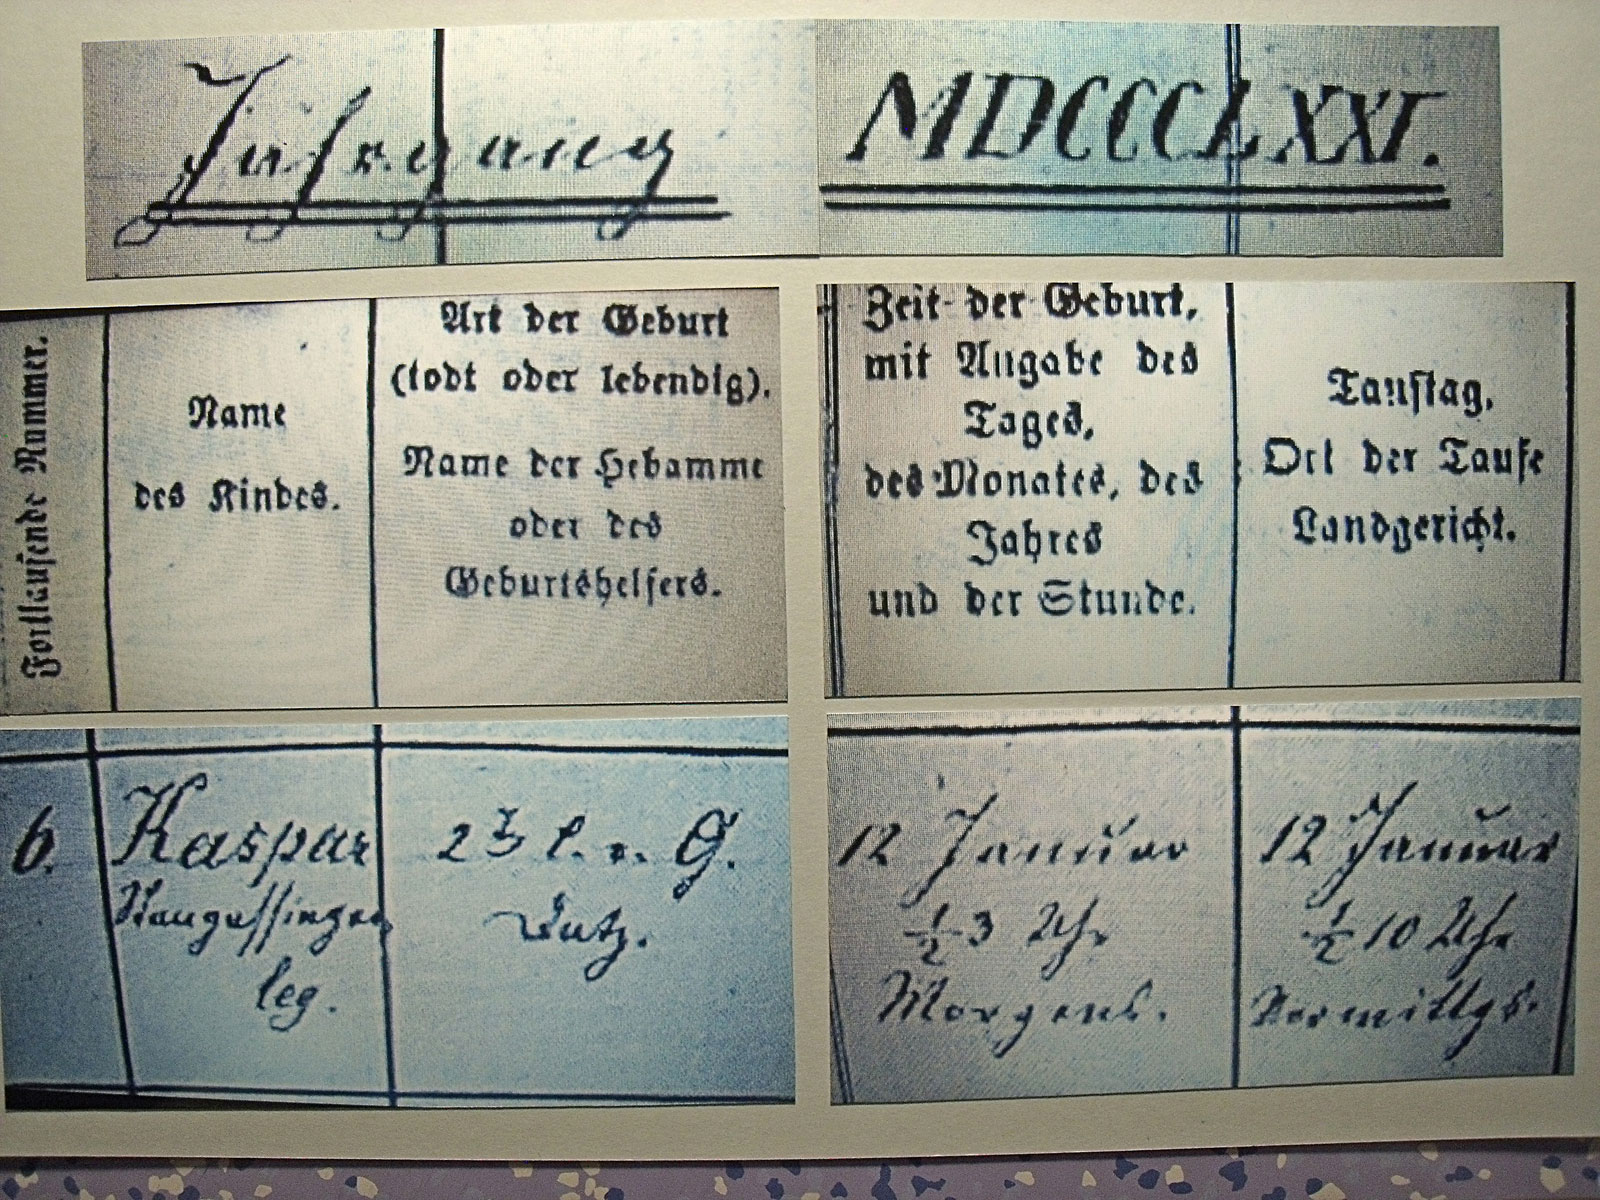 Jahrgang
MDCCCLXXI.
Fortlaufende Nummer.
Name
des Kindes.
Art der Geburt
(todt oder lebendig).
Name der Hebamme
oder des
Geburtshelfers.
Zeit der Geburt,
mit Angabe des
Tages,
des Monates, des
Jahres
und der Stunde.
Tauftag,
Ort der Taufe
Landgericht.
6.
Kaspar
leg.
G.
12 Januar
½ 3 Uhr
Morgens.
12 Januar
½ 10 Uhr
Vormittgs.